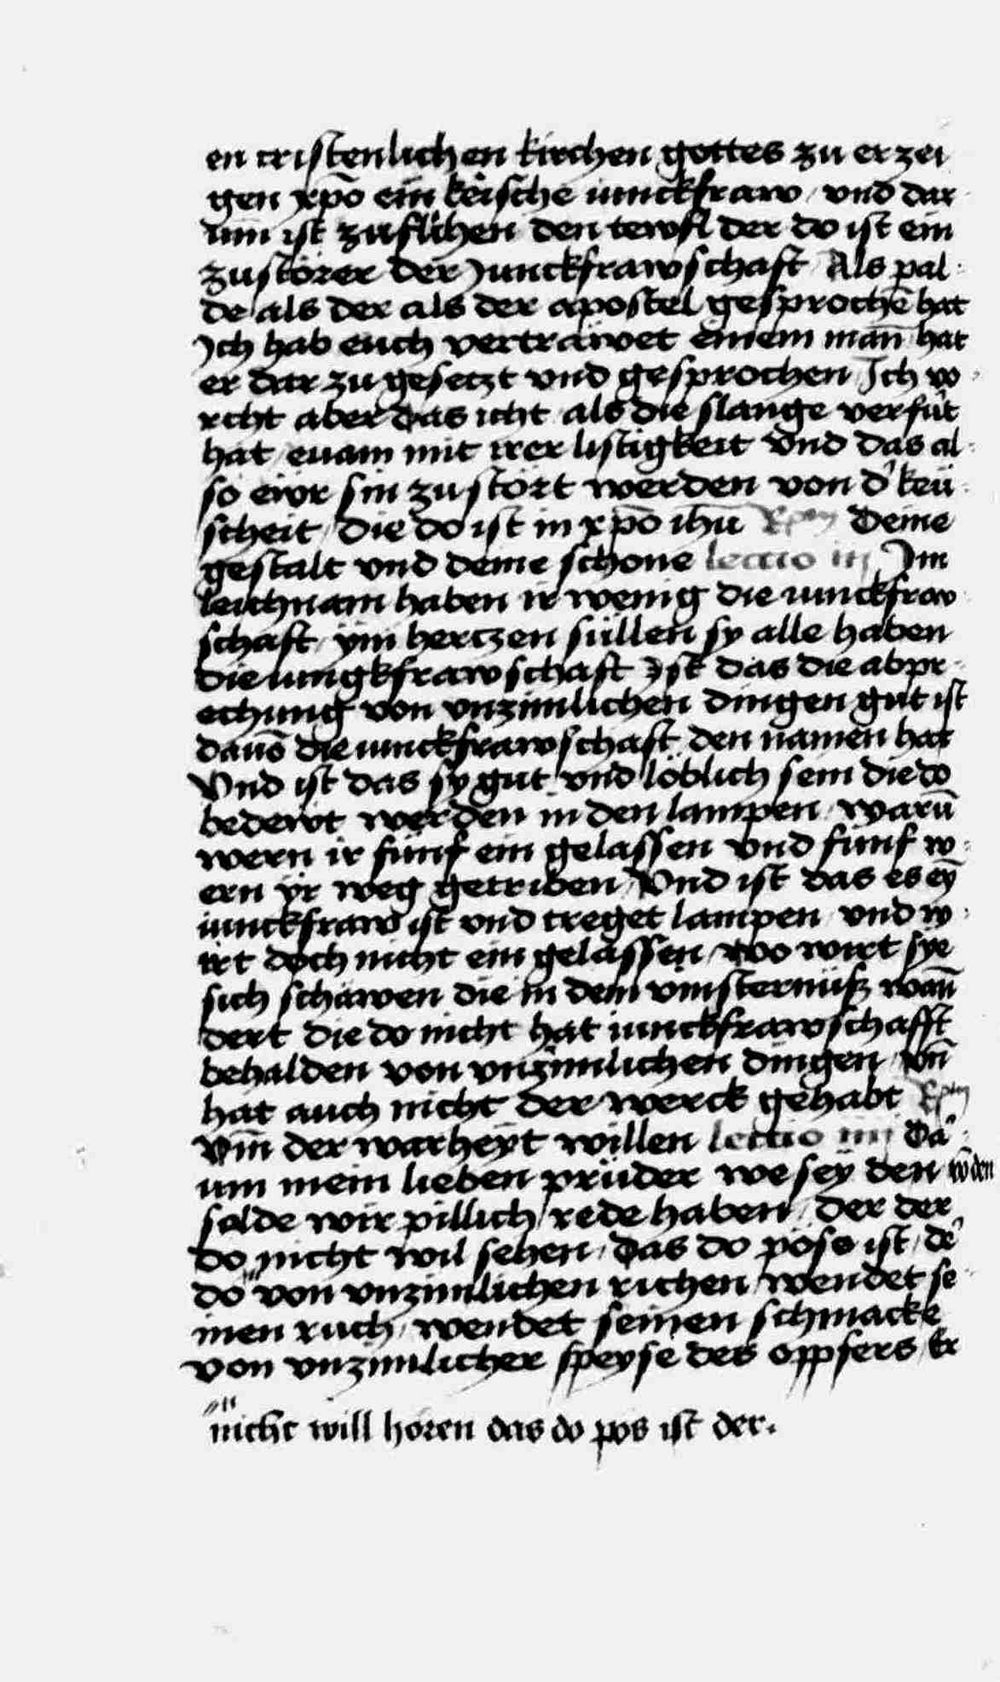 en cristenlichen kirchen gottes zu erzei
gen xp̄o ein keische iunckfraw / vnd dar
um̄ ist zuflihen den tewfl der do ist ein
zustörer der Junckfrawschaft Als pal-
de als der als der apostel gesproche͞ hat
Ich hab euch vertrawet einem man̄ hat
er dar zu gesetzt vnd gesprochen Ich vo-
rcht aber das icht als die slange verfüt
hat / euam mit irer listigkeit Vnd das al-
so ewr sin zustört werden von d' keü-
scheit / die do ist in xp̄o ihū Rm Deine
gestalt vnd deine schone lectio iij Im
leichnam haben ir wenig die iunckfraw
schaft / ym hertzen süllen sy alle haben
die iungkfrawschaft Ist das die abpr-
echung von vnzimlichen dingen gut ist
dauō die iunckfrawschaft den namen hat
Vnd ist das sy gut vnd löblich sein die do
bedewt werden in den lampen / warū
wern ir fünf ein gelassen vnd fünf w-
ern yr weg getriben / Vnd ist das es eȳ
iunckfraw ist vnd treget lampen vnd w-
irt doch nicht ein gelassen / wo wirt sye
sich schawen die in dem vinsternüß wan̄
dert die do nicht hat iunckfrawschafft
behalden von vnzimlichen dingen / vn̄
hat auch nicht der werck gehabt Rm
Vm̄ der warheyt willen lectio iiij Da-
um mein lieben prüder we sey den vō den
solde wir pillich / rede haben / der der
do nicht wil sehen / das do pöse ist / d'
do " von vnzimlichen richen / wendet se-
inen ruch / wendet seinen schmacke
von vnzimlicher speyse des oppfers / Er
" nicht will hören das do pös ist der.